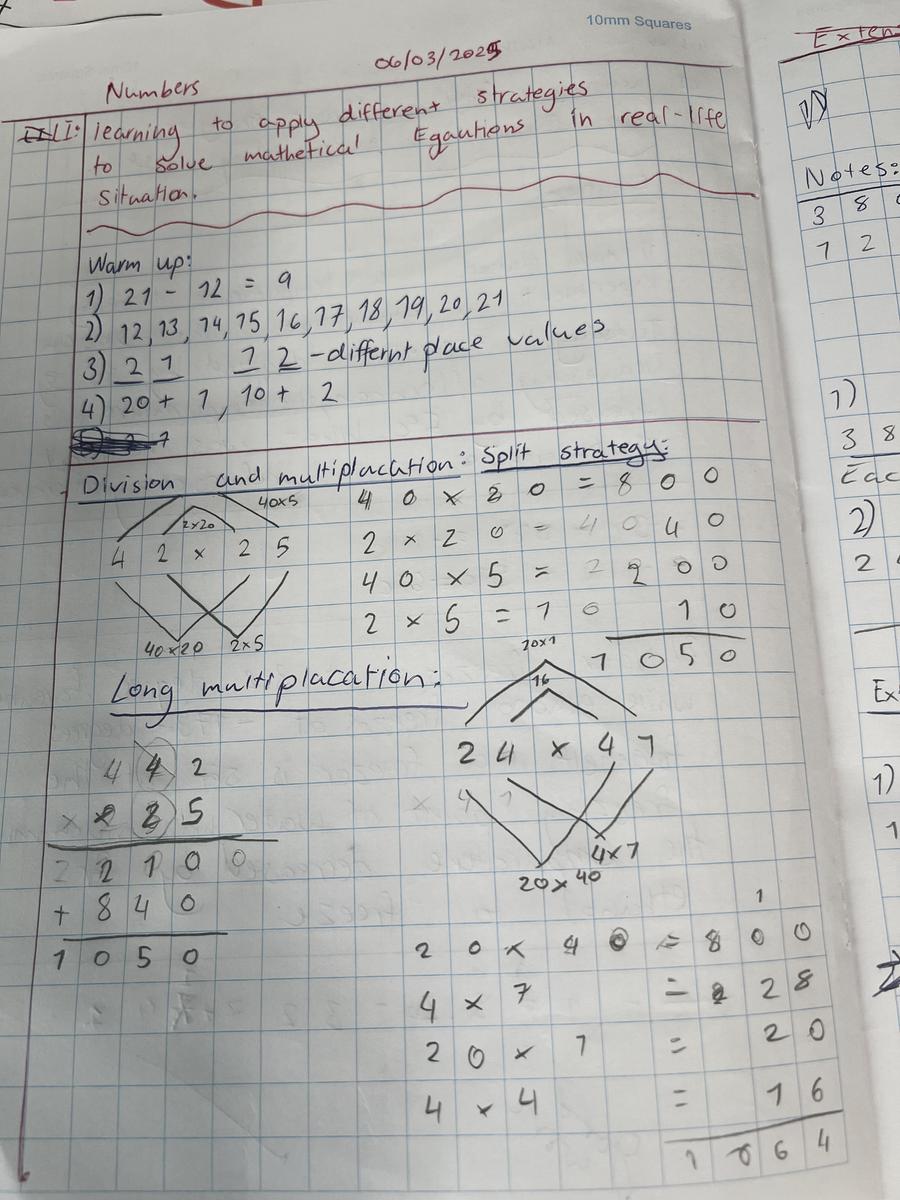 10mm Squares
06/03/2025
Numbers
LI: learning to apply different strategies
to solve mathetical Egautions in real-life
situation.
Warm up:
1) 21 - 12 = 9
2) 12, 13, 14, 15, 16, 17, 18, 19, 20, 21
3) 2 1 1 2 - differnt place values
4) 20 + 1, 10 + 2
Division and multiplacation: Split strategy:
40x5
2x20
4 2 x 2 5
40x20 2x5
4 0 x 2 0 = 8 0 0
2 x 2 0 = 4 0 4 0
4 0 x 5 = 2 2 0 0
2 x 5 = 1 0 1 0
1 0 5 0
Long multiplacation:
4 4 2
x 2 5
2 2 1 0 0
+ 8 4 0
1 0 5 0
20x1
16
2 4 x 4 7
4x7
20x40
1
2 0 x 4 0 = 8 0 0
4 x 7 = 2 8
2 0 x 1 = 2 0
4 x 4 = 1 6
1 0 6 4
Exten
1)
Notes:
3 8
7 2
1)
3 8
Eac
2)
2
Ex
1)
1